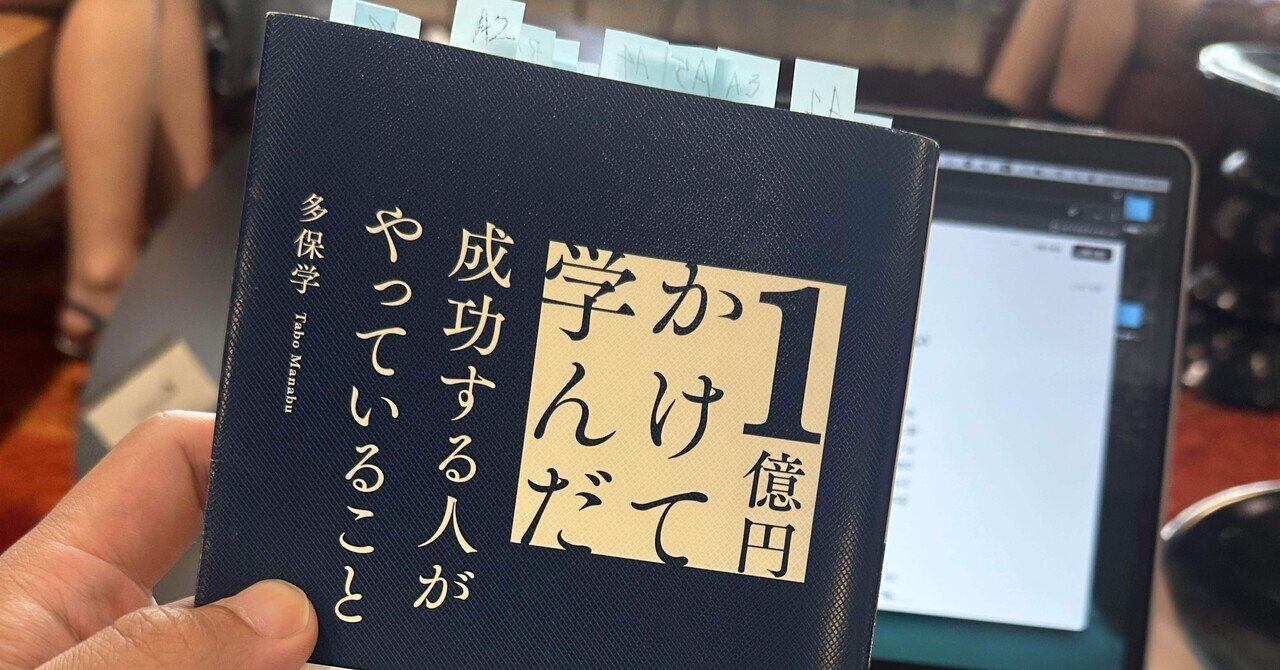 1億円
かけて
学んだ
成功する人が
やっていること
多保学 Tabo Manabu
A2
A3